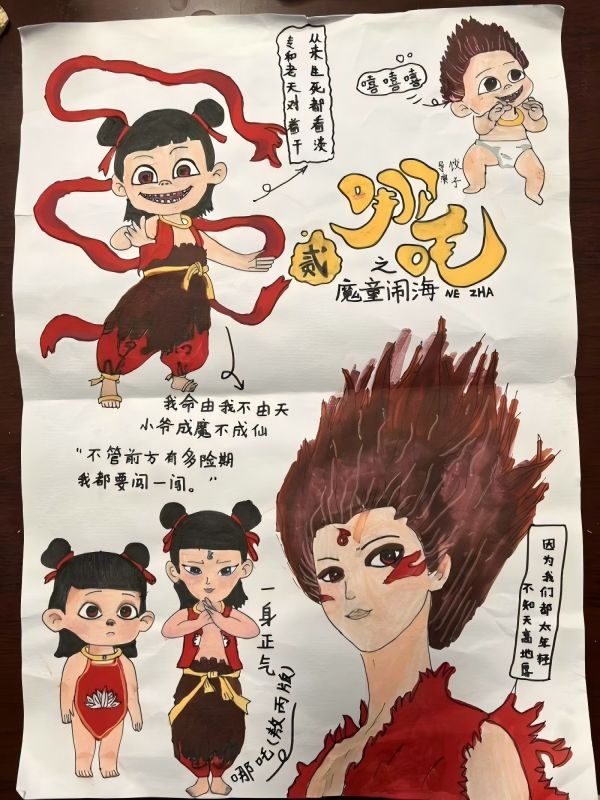 从来生死都看淡
专和老天对着干
嘻嘻嘻
饺子
哪吒
贰
之
魔童闹海 NE ZHA
我命由我不由天
小爷成魔不成仙
“不管前方有多险期
我都要闯一闯。”
一身正气
哪吒(敖丙版)
因为我们都太年轻
不知天高地厚